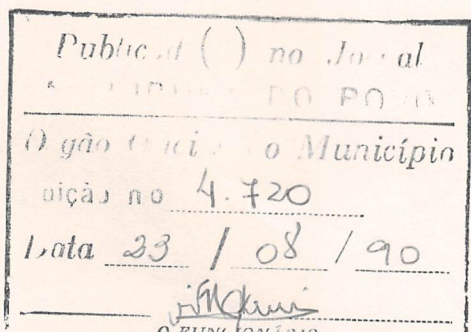 Publicad ( ) no Jornal
DO POVO
Orgão Oficial do Município
Edição no 4.720
Data 23 / 08 / 90
O FUNCIONÁRIO